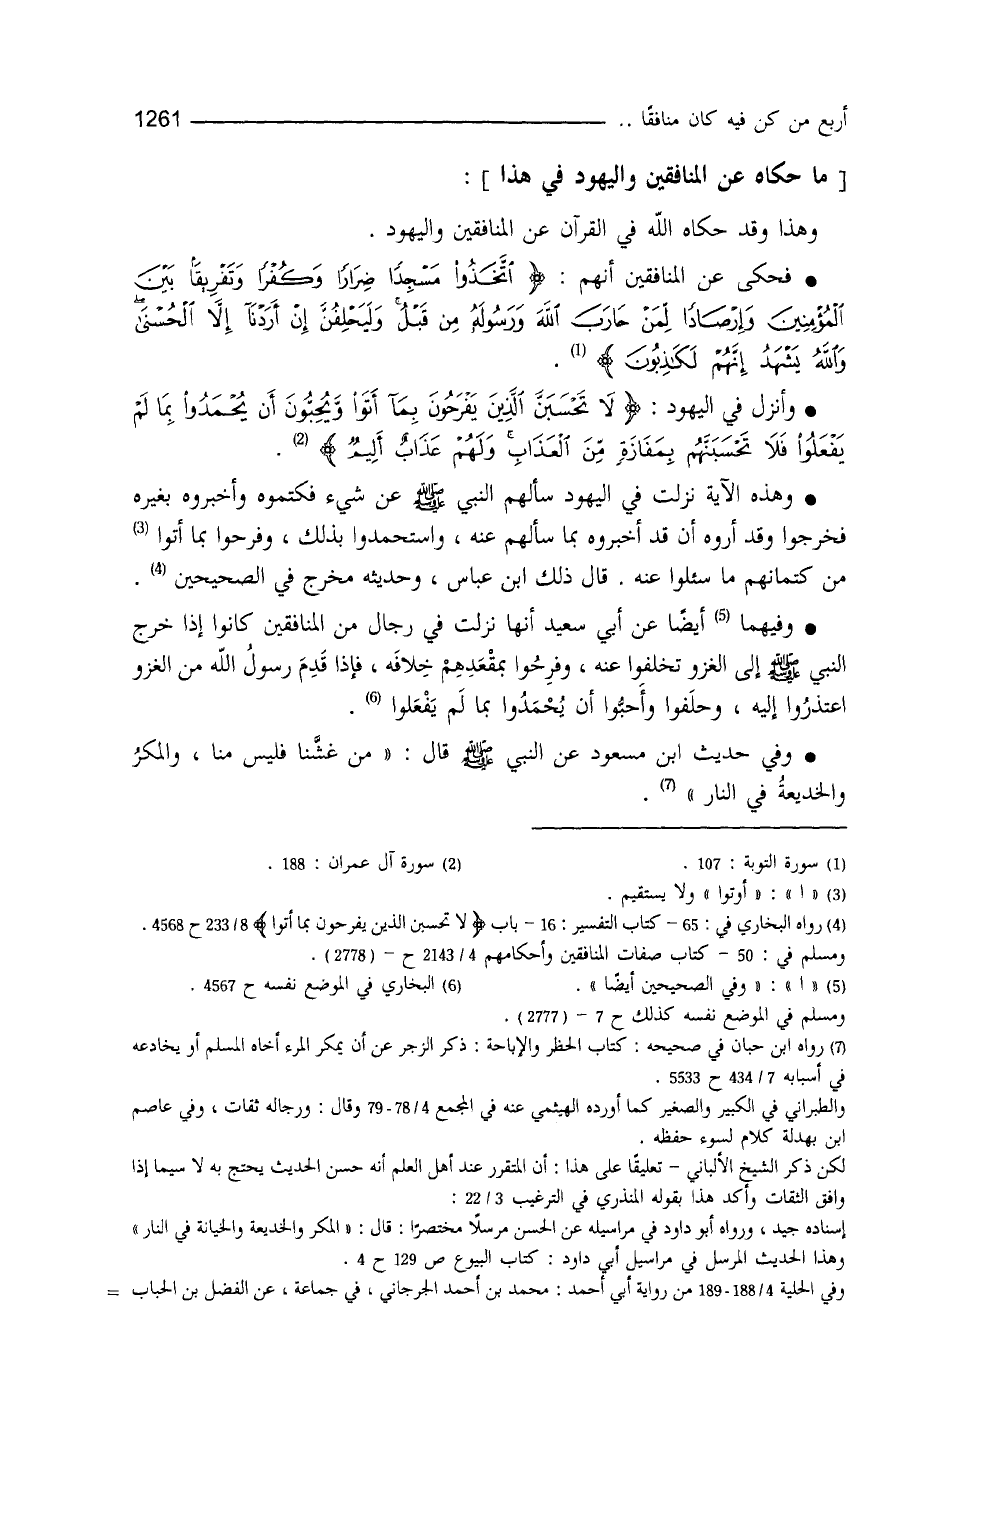 أربع من كن فيه كان منافقًا .. 1261
[ ما حكاه عن المنافقين واليهود في هذا ] :
وهذا وقد حكاه الله في القرآن عن المنافقين واليهود .
● فحكى عن المنافقين أنهم : ﴿ ٱتَّخَذُواْ مَسْجِدًا ضِرَارًا وَكُفْرًا وَتَفْرِيقًۢا بَيْنَ
ٱلْمُؤْمِنِينَ وَإِرْصَادًا لِّمَنْ حَارَبَ ٱللَّهَ وَرَسُولَهُۥ مِن قَبْلُ ۚ وَلَيَحْلِفُنَّ إِنْ أَرَدْنَآ إِلَّا ٱلْحُسْنَىٰ ۖ
وَٱللَّهُ يَشْهَدُ إِنَّهُمْ لَكَٰذِبُونَ ﴾ (1) .
● وأنزل في اليهود : ﴿ لَا تَحْسَبَنَّ ٱلَّذِينَ يَفْرَحُونَ بِمَآ أَتَواْ وَّيُحِبُّونَ أَن يُحْمَدُواْ بِمَا لَمْ
يَفْعَلُواْ فَلَا تَحْسَبَنَّهُم بِمَفَازَةٍ مِّنَ ٱلْعَذَابِ ۚ وَلَهُمْ عَذَابٌ أَلِيمٌ ﴾ (2) .
● وهذه الآية نزلت في اليهود سألهم النبي ﷺ عن شيء فكتموه وأخبروه بغيره
فخرجوا وقد أروه أن قد أخبروه بما سألهم عنه ، واستحمدوا بذلك ، وفرحوا بما أتوا (3)
من كتمانهم ما سئلوا عنه . قال ذلك ابن عباس ، وحديثه مخرج في الصحيحين (4) .
● وفيهما (5) أيضًا عن أبي سعيد أنها نزلت في رجال من المنافقين كانوا إذا خرج
النبي ﷺ إلى الغزو تخلفوا عنه ، وفرِحُوا بمقْعَدِهِمْ خِلافَه ، فإذا قَدِمَ رسولُ الله من الغزو
اعتذرُوا إليه ، وحلَفوا وأَحبُّوا أن يُحْمَدُوا بما لَم يَفْعَلوا (6) .
● وفي حديث ابن مسعود عن النبي ﷺ قال : « من غشَّنا فليس منا ، والمكرُ
والخديعةُ في النار » (7) .
(1) سورة التوبة : 107 . (2) سورة آل عمران : 188 .
(3) « ا » : « أوتوا » ولا يستقيم .
(4) رواه البخاري في : 65 – كتاب التفسير : 16 – باب ﴿ لا تحسبن الذين يفرحون بما أتوا ﴾ 8/ 233 ح 4568 .
ومسلم في : 50 – كتاب صفات المنافقين وأحكامهم 4/ 2143 ح – ( 2778 ) .
(5) « ا » : « وفي الصحيحين أيضًا » . (6) البخاري في الموضع نفسه ح 4567 .
ومسلم في الموضع نفسه كذلك ح 7 – ( 2777 ) .
(7) رواه ابن حبان في صحيحه : كتاب الحظر والإباحة : ذكر الزجر عن أن يمكر المرء أخاه المسلم أو يخادعه
في أسبابه 7/ 434 ح 5533 .
والطبراني في الكبير والصغير كما أورده الهيثمي عنه في المجمع 4/ 78-79 وقال : ورجاله ثقات ، وفي عاصم
ابن بهدلة كلام لسوء حفظه .
لكن ذكر الشيخ الألباني – تعليقًا على هذا : أن المتقرر عند أهل العلم أنه حسن الحديث يحتج به لا سيما إذا
وافق الثقات وأكد هذا بقوله المنذري في الترغيب 3/ 22 :
إسناده جيد ، ورواه أبو داود في مراسيله عن الحسن مرسلًا مختصرًا : قال : « المكر والخديعة والخيانة في النار »
وهذا الحديث المرسل في مراسيل أبي داود : كتاب البيوع ص 129 ح 4 .
وفي الحلية 4/ 188-189 من رواية أبي أحمد : محمد بن أحمد الجرجاني ، في جماعة ، عن الفضل بن الحباب =